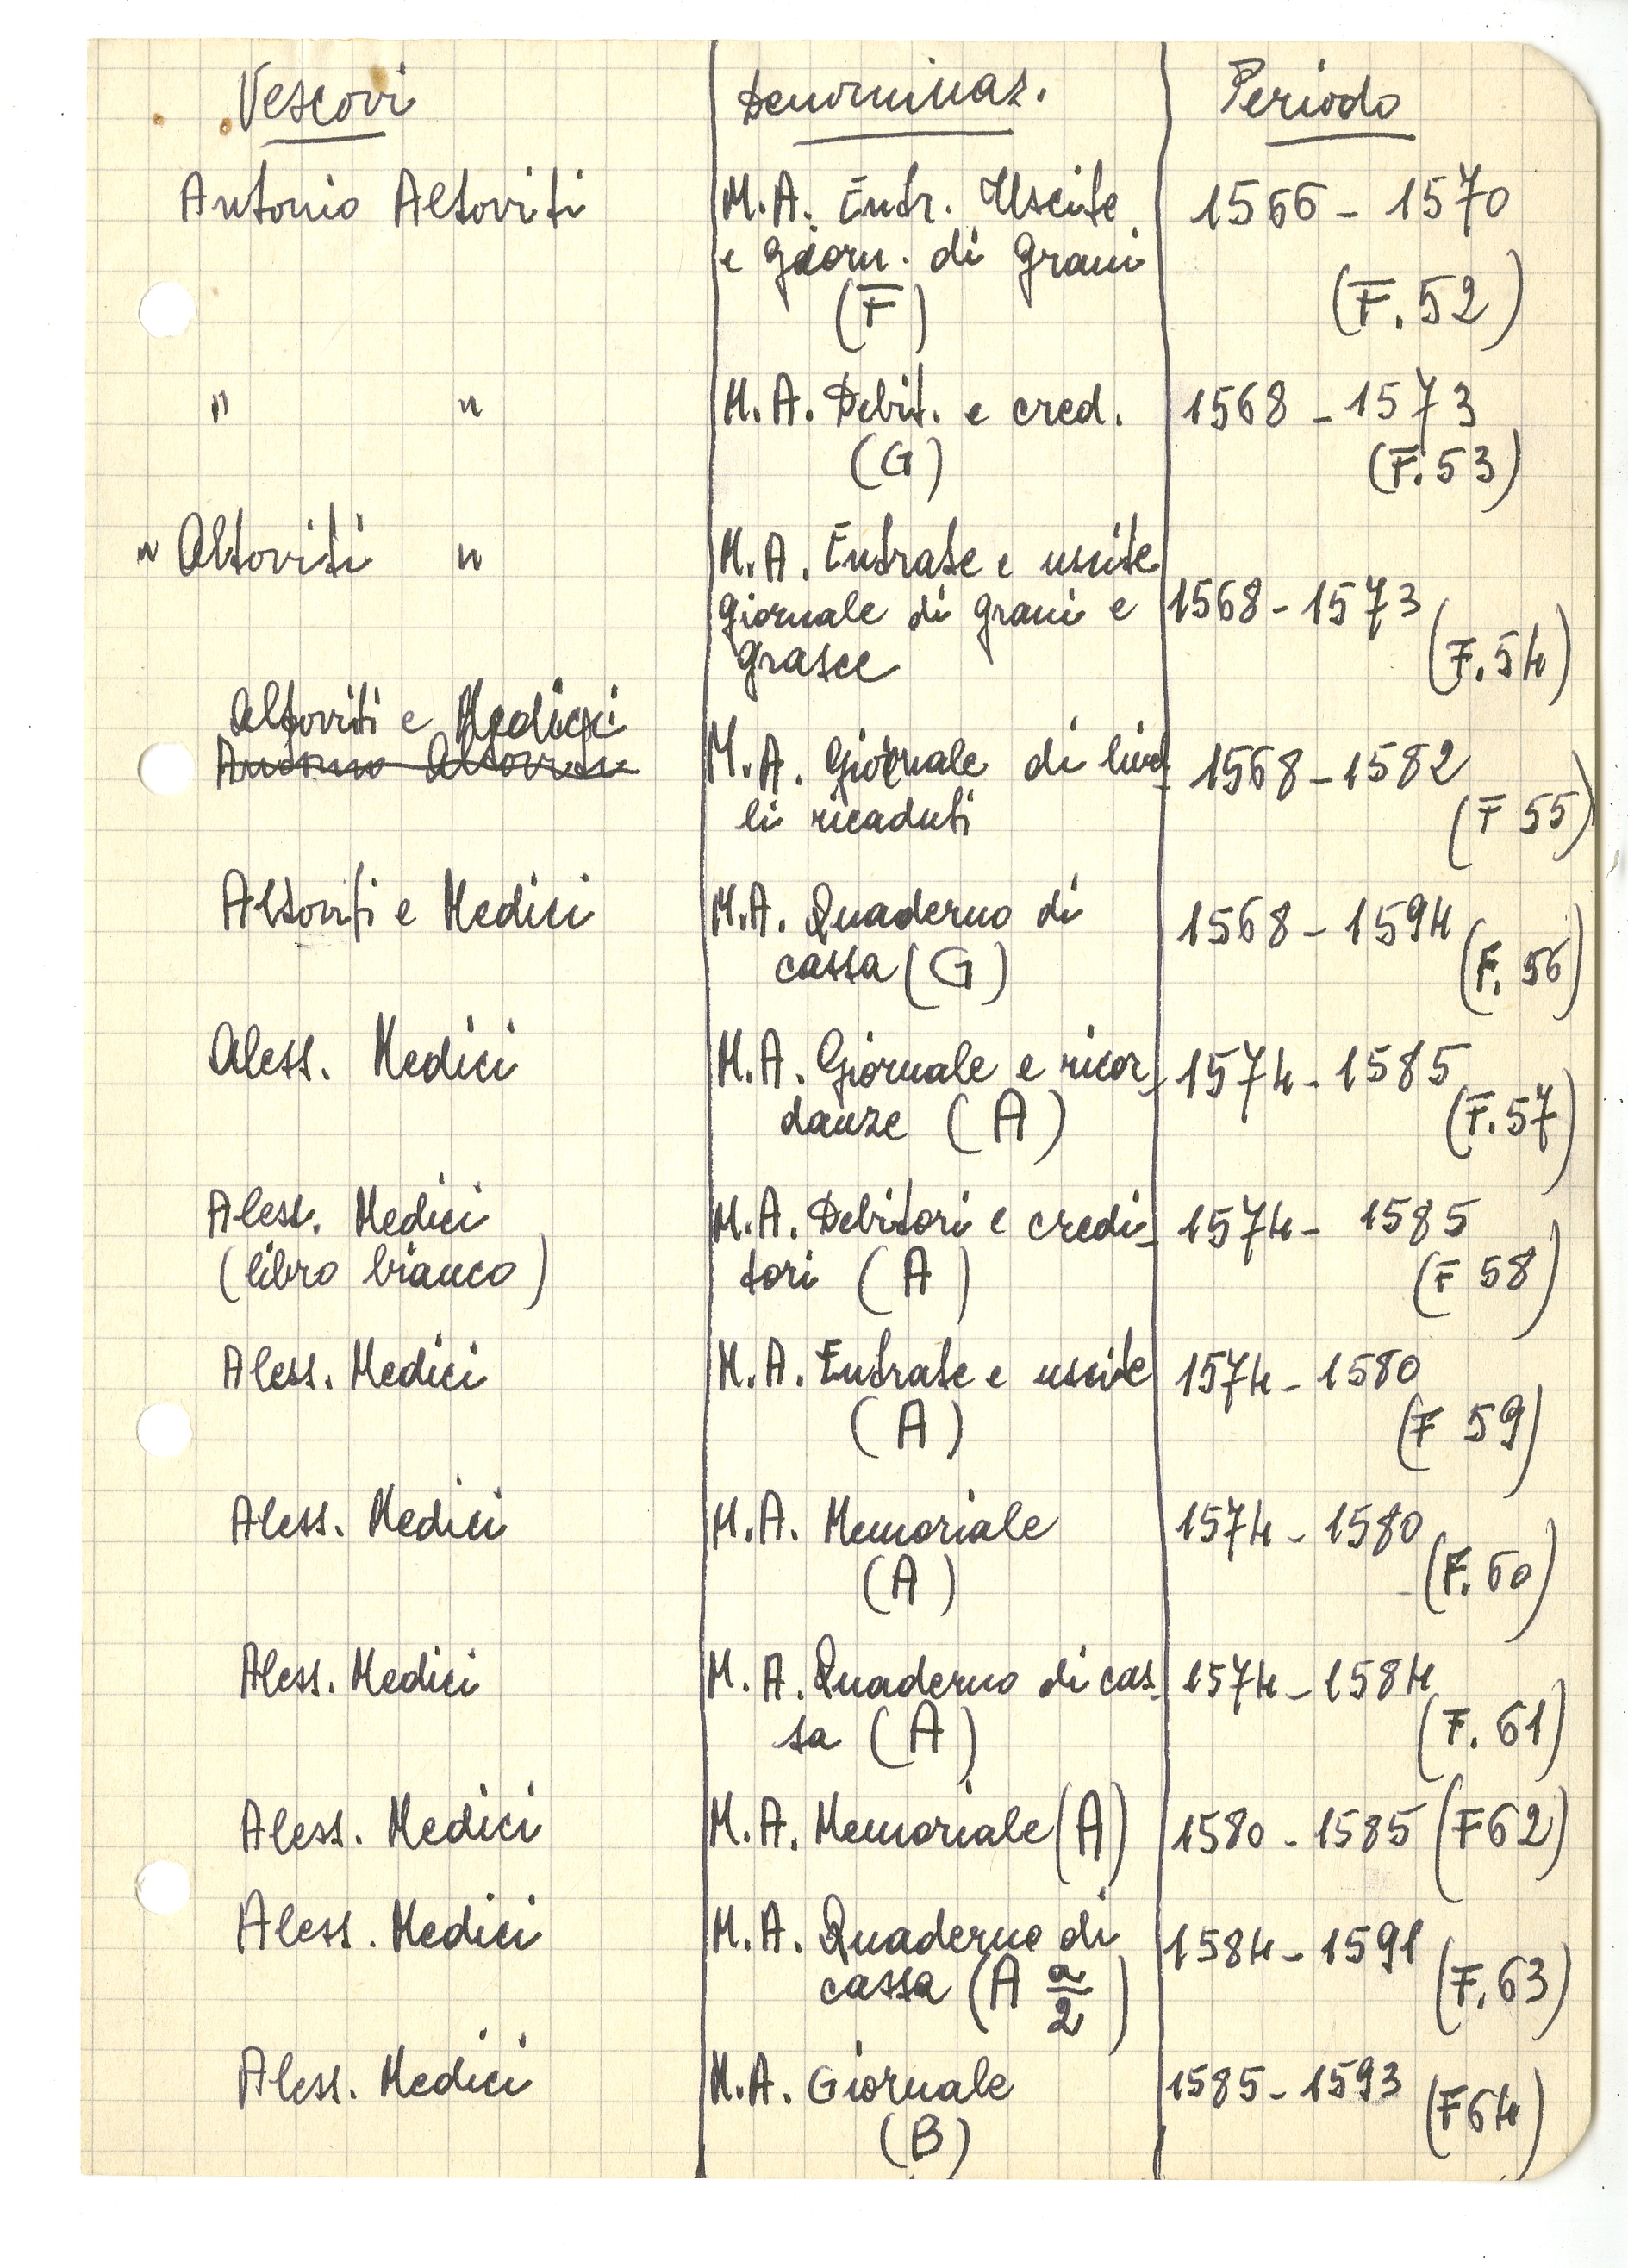 Vescovi Denominaz. Periodo
Antonio Altoviti M.A. Entr. Uscite 1566 - 1570
e giorn. di grani
(F) (F. 52)
" " M.A. Debit. e cred. 1568 - 1573
(G) (F. 53)
" Altoviti " M.A. Entrate e uscite
giornale di grani e 1568 - 1573
grasce (F. 54)
Altoviti e Medici
Antonio Altoviti M.A. Giornale di livel- 1568 - 1582
li ricaduti (F 55)
Altoviti e Medici M.A. Quaderno di 1568 - 1594
cassa (G) (F. 56)
Aless. Medici M.A. Giornale e ricor- 1574 - 1585
danze (A) (F. 57)
Aless. Medici M.A. Debitori e credi- 1574 - 1585
(libro bianco) tori (A) (F 58)
Aless. Medici M.A. Entrate e uscite 1574 - 1580
(A) (F 59)
Aless. Medici M.A. Memoriale 1574 - 1580
(A) (F. 60)
Aless. Medici M.A. Quaderno di cas- 1574 - 1584
sa (A) (F. 61)
Aless. Medici M.A. Memoriale (A) 1580 - 1585 (F 62)
Aless. Medici M.A. Quaderno di 1584 - 1591
cassa (A a/2) (F. 63)
Aless. Medici M.A. Giornale 1585 - 1593
(B) (F 64)